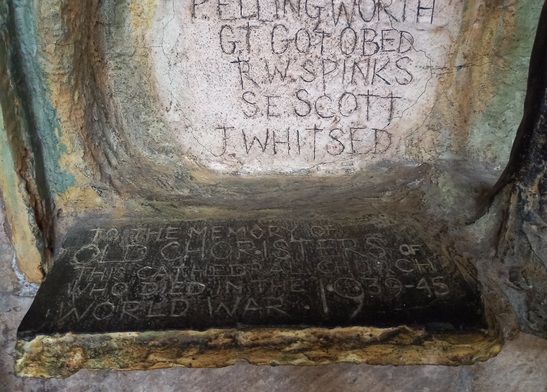 P. ELLINGWORTH
G.T. GOTOBED
R.W. SPINKS
S.E. SCOTT
J. WHITSED
TO THE MEMORY OF
OLD CHORISTERS OF
THIS CATHEDRAL CHURCH
WHO DIED IN THE 1939-45
WORLD WAR